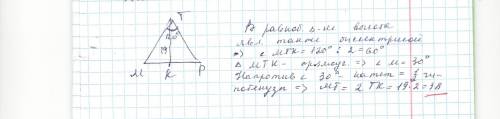 T
120°
19
М К Р
В равноб. Δ-ке высота
явл. также биссектрисой
=> ∠ МТК = 120° : 2 = 60°
Δ МТК - прямоуг. => ∠ М = 30°
Напротив ∠ 30° - катет = ½ ги-
потенузы => МТ = 2 ТК = 19·2 = 38